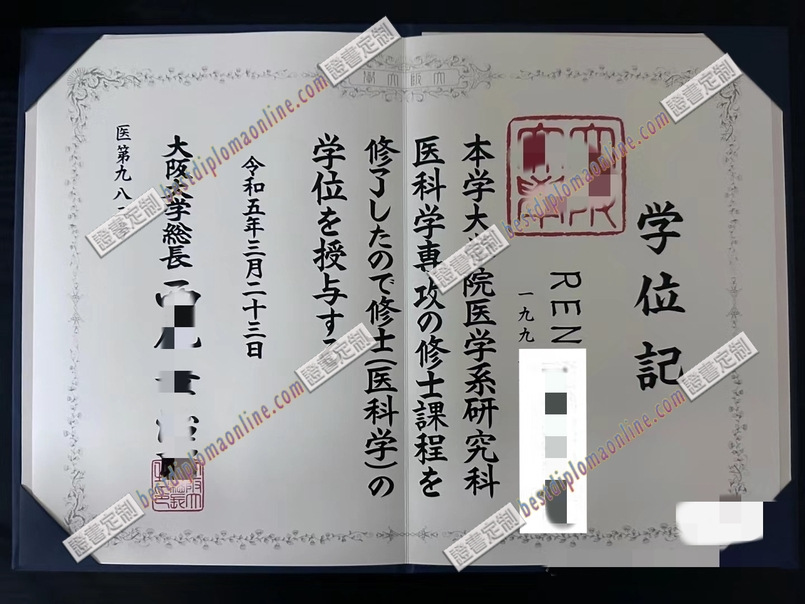 大阪大學
学位記
REN
一九九
本学大院医学系研究科
医科学専攻の修士課程を
修了したので修士(医科学)の
学位を授与す
令和五年三月二十三日
大阪大学総長
医第九八
證書定制
bestdiplomaonline.com
證書定制
證書定制
bestdiplomaonline.com
證書定制
證書定制
bestdiplomaonline.com
證書定制
證書定制
bestdiplomaonline.com
證書定制